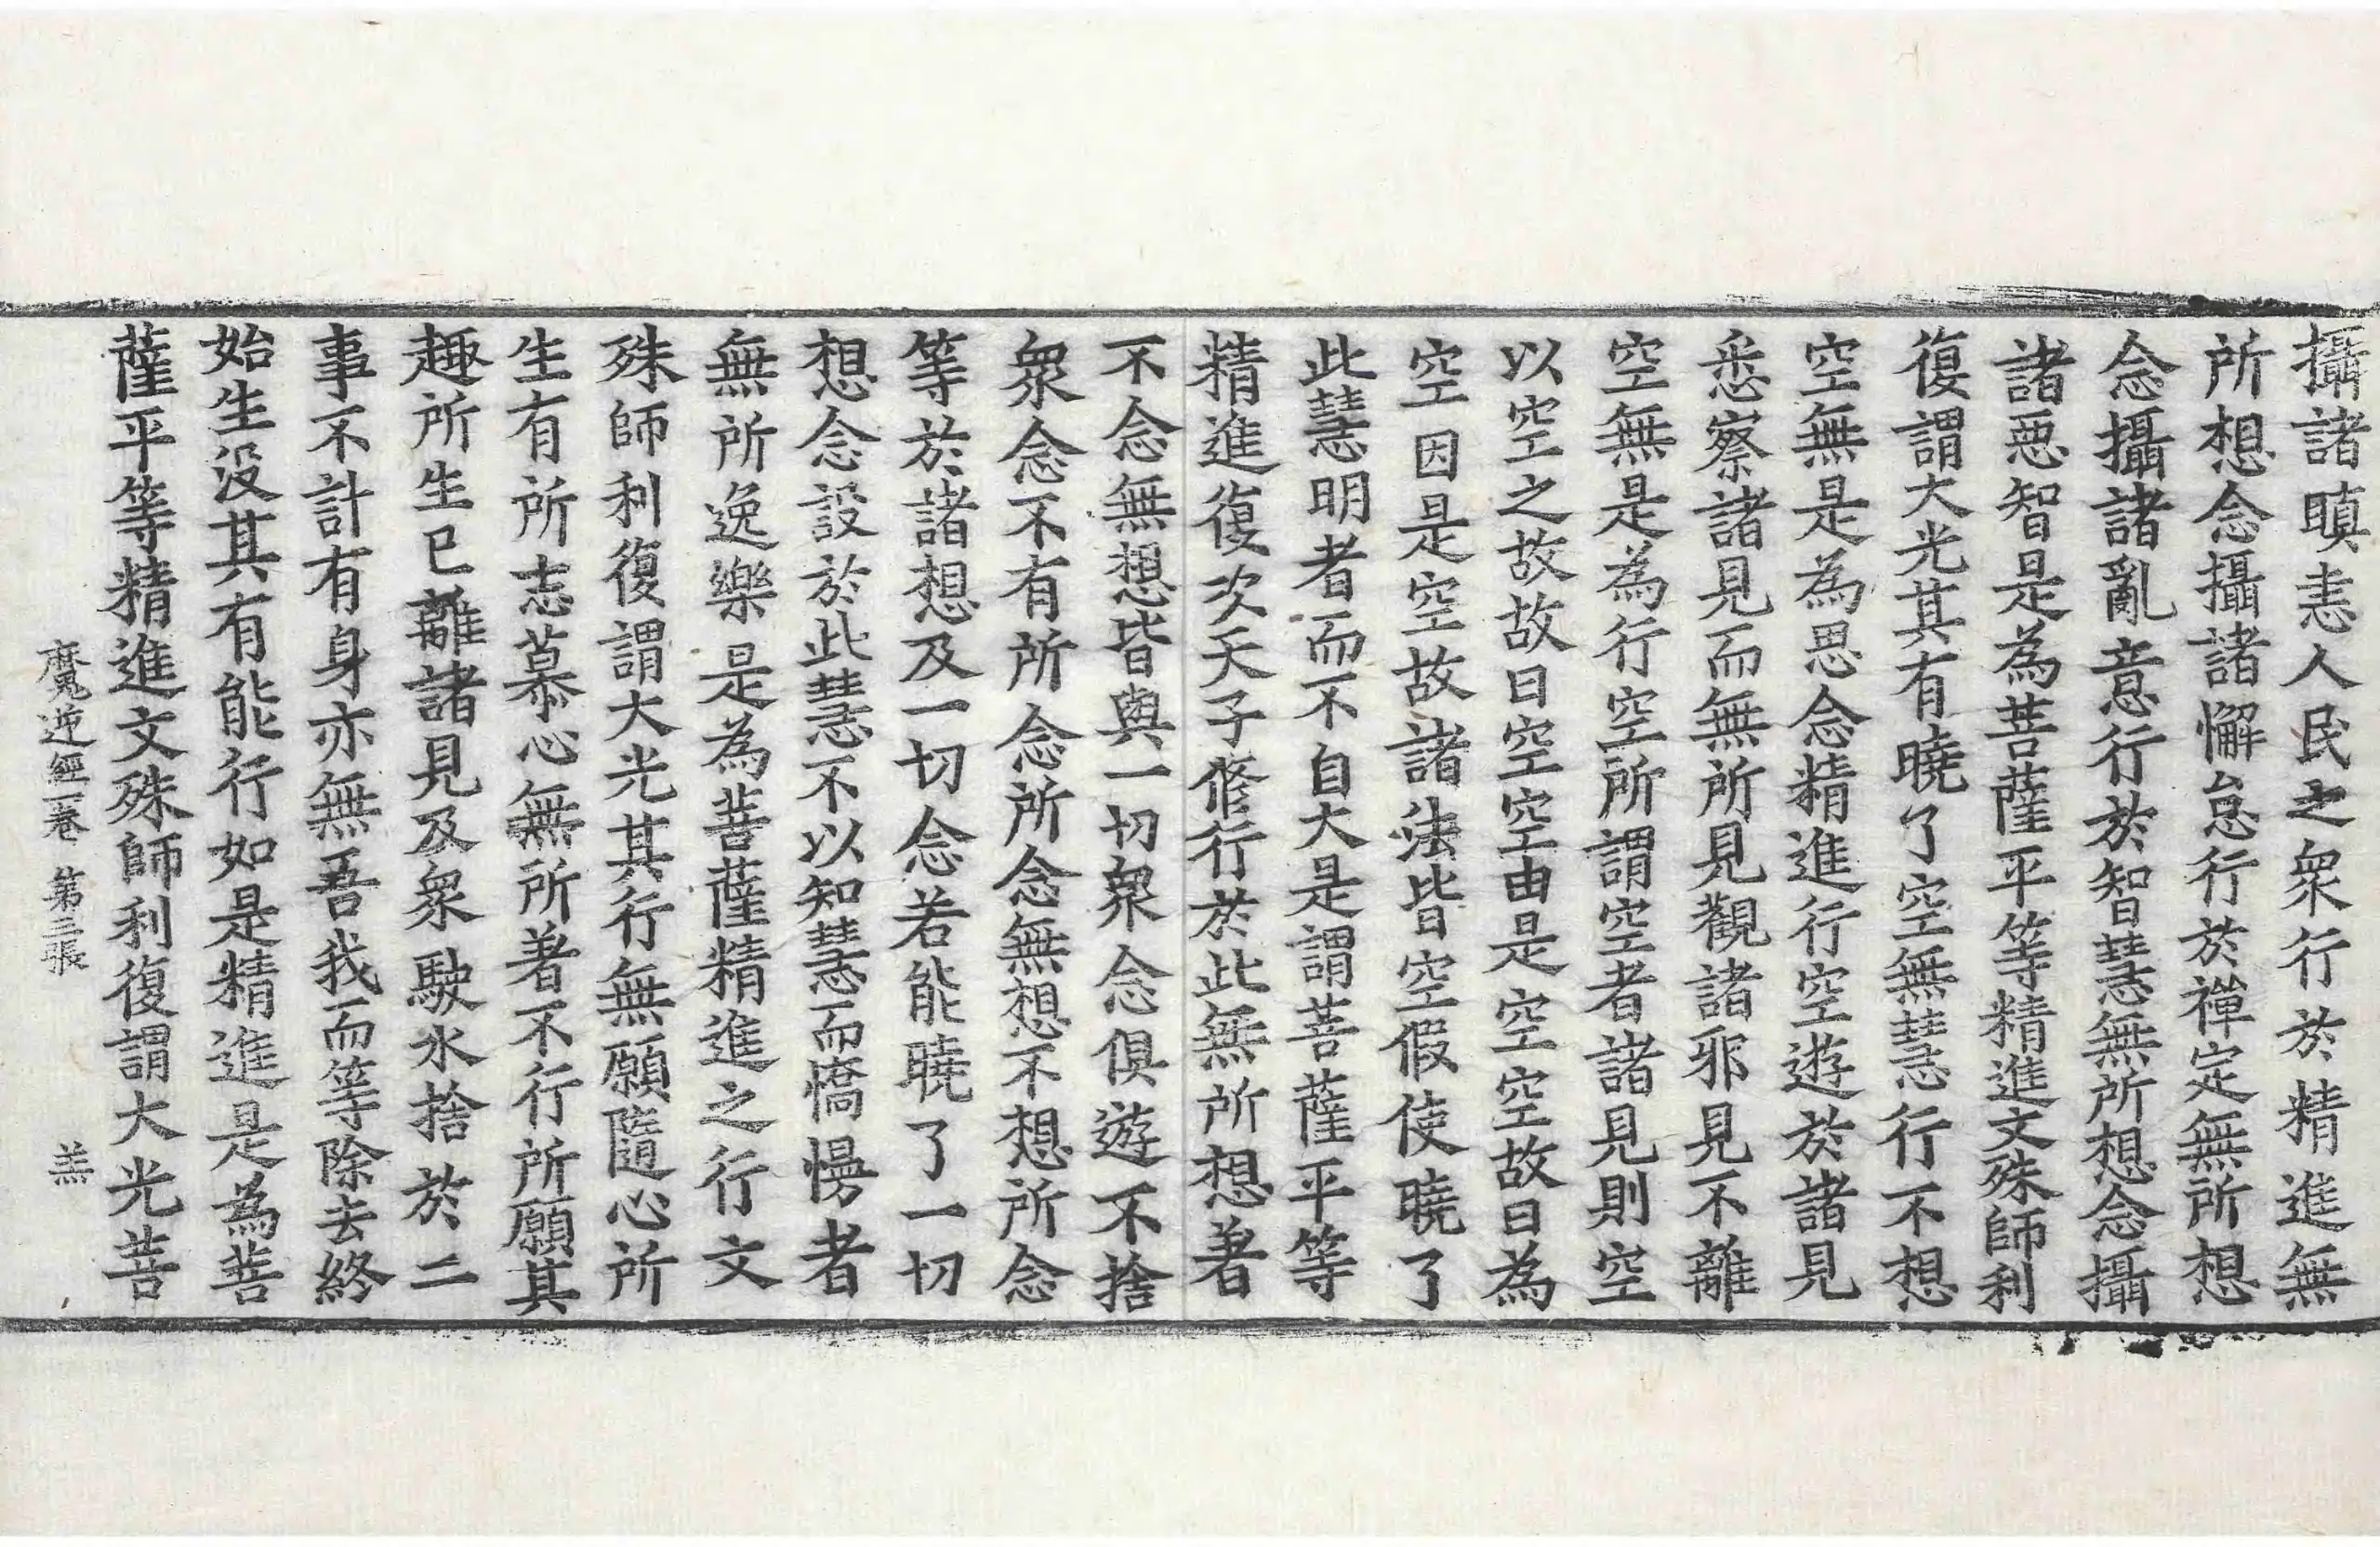 攝諸瞋恚人民之衆行於精進無
所想念攝諸懈怠行於禪定無所想
念攝諸亂意行於智慧無所想念攝
諸惡智是為菩薩平等精進文殊師利
復謂大光其有曉了空無慧行不想
空無是為思念精進行空遊於諸見
悉察諸見而無所見觀諸邪見不離
空無是為行空所謂空者諸見則空
以空之故故曰空空由是空空故曰為
空因是空故諸法皆空假使曉了
此慧明者而不自大是謂菩薩平等
精進復次天子修行於此無所想著
不念無想皆與一切衆念俱遊不捨
衆念不有所念所念無想不想所念
等於諸想及一切念若能曉了一切
想念設於此慧不以知慧而憍慢者
無所逸樂是為菩薩精進之行文
殊師利復謂大光其行無願隨心所
生有所志慕心無所著不行所願其
趣所生已離諸見及衆駛水捨於二
事不計有身亦無吾我而等除去終
始生沒其有能行如是精進是為菩
薩平等精進文殊師利復謂大光菩
魔逆經一卷 第三張 羔